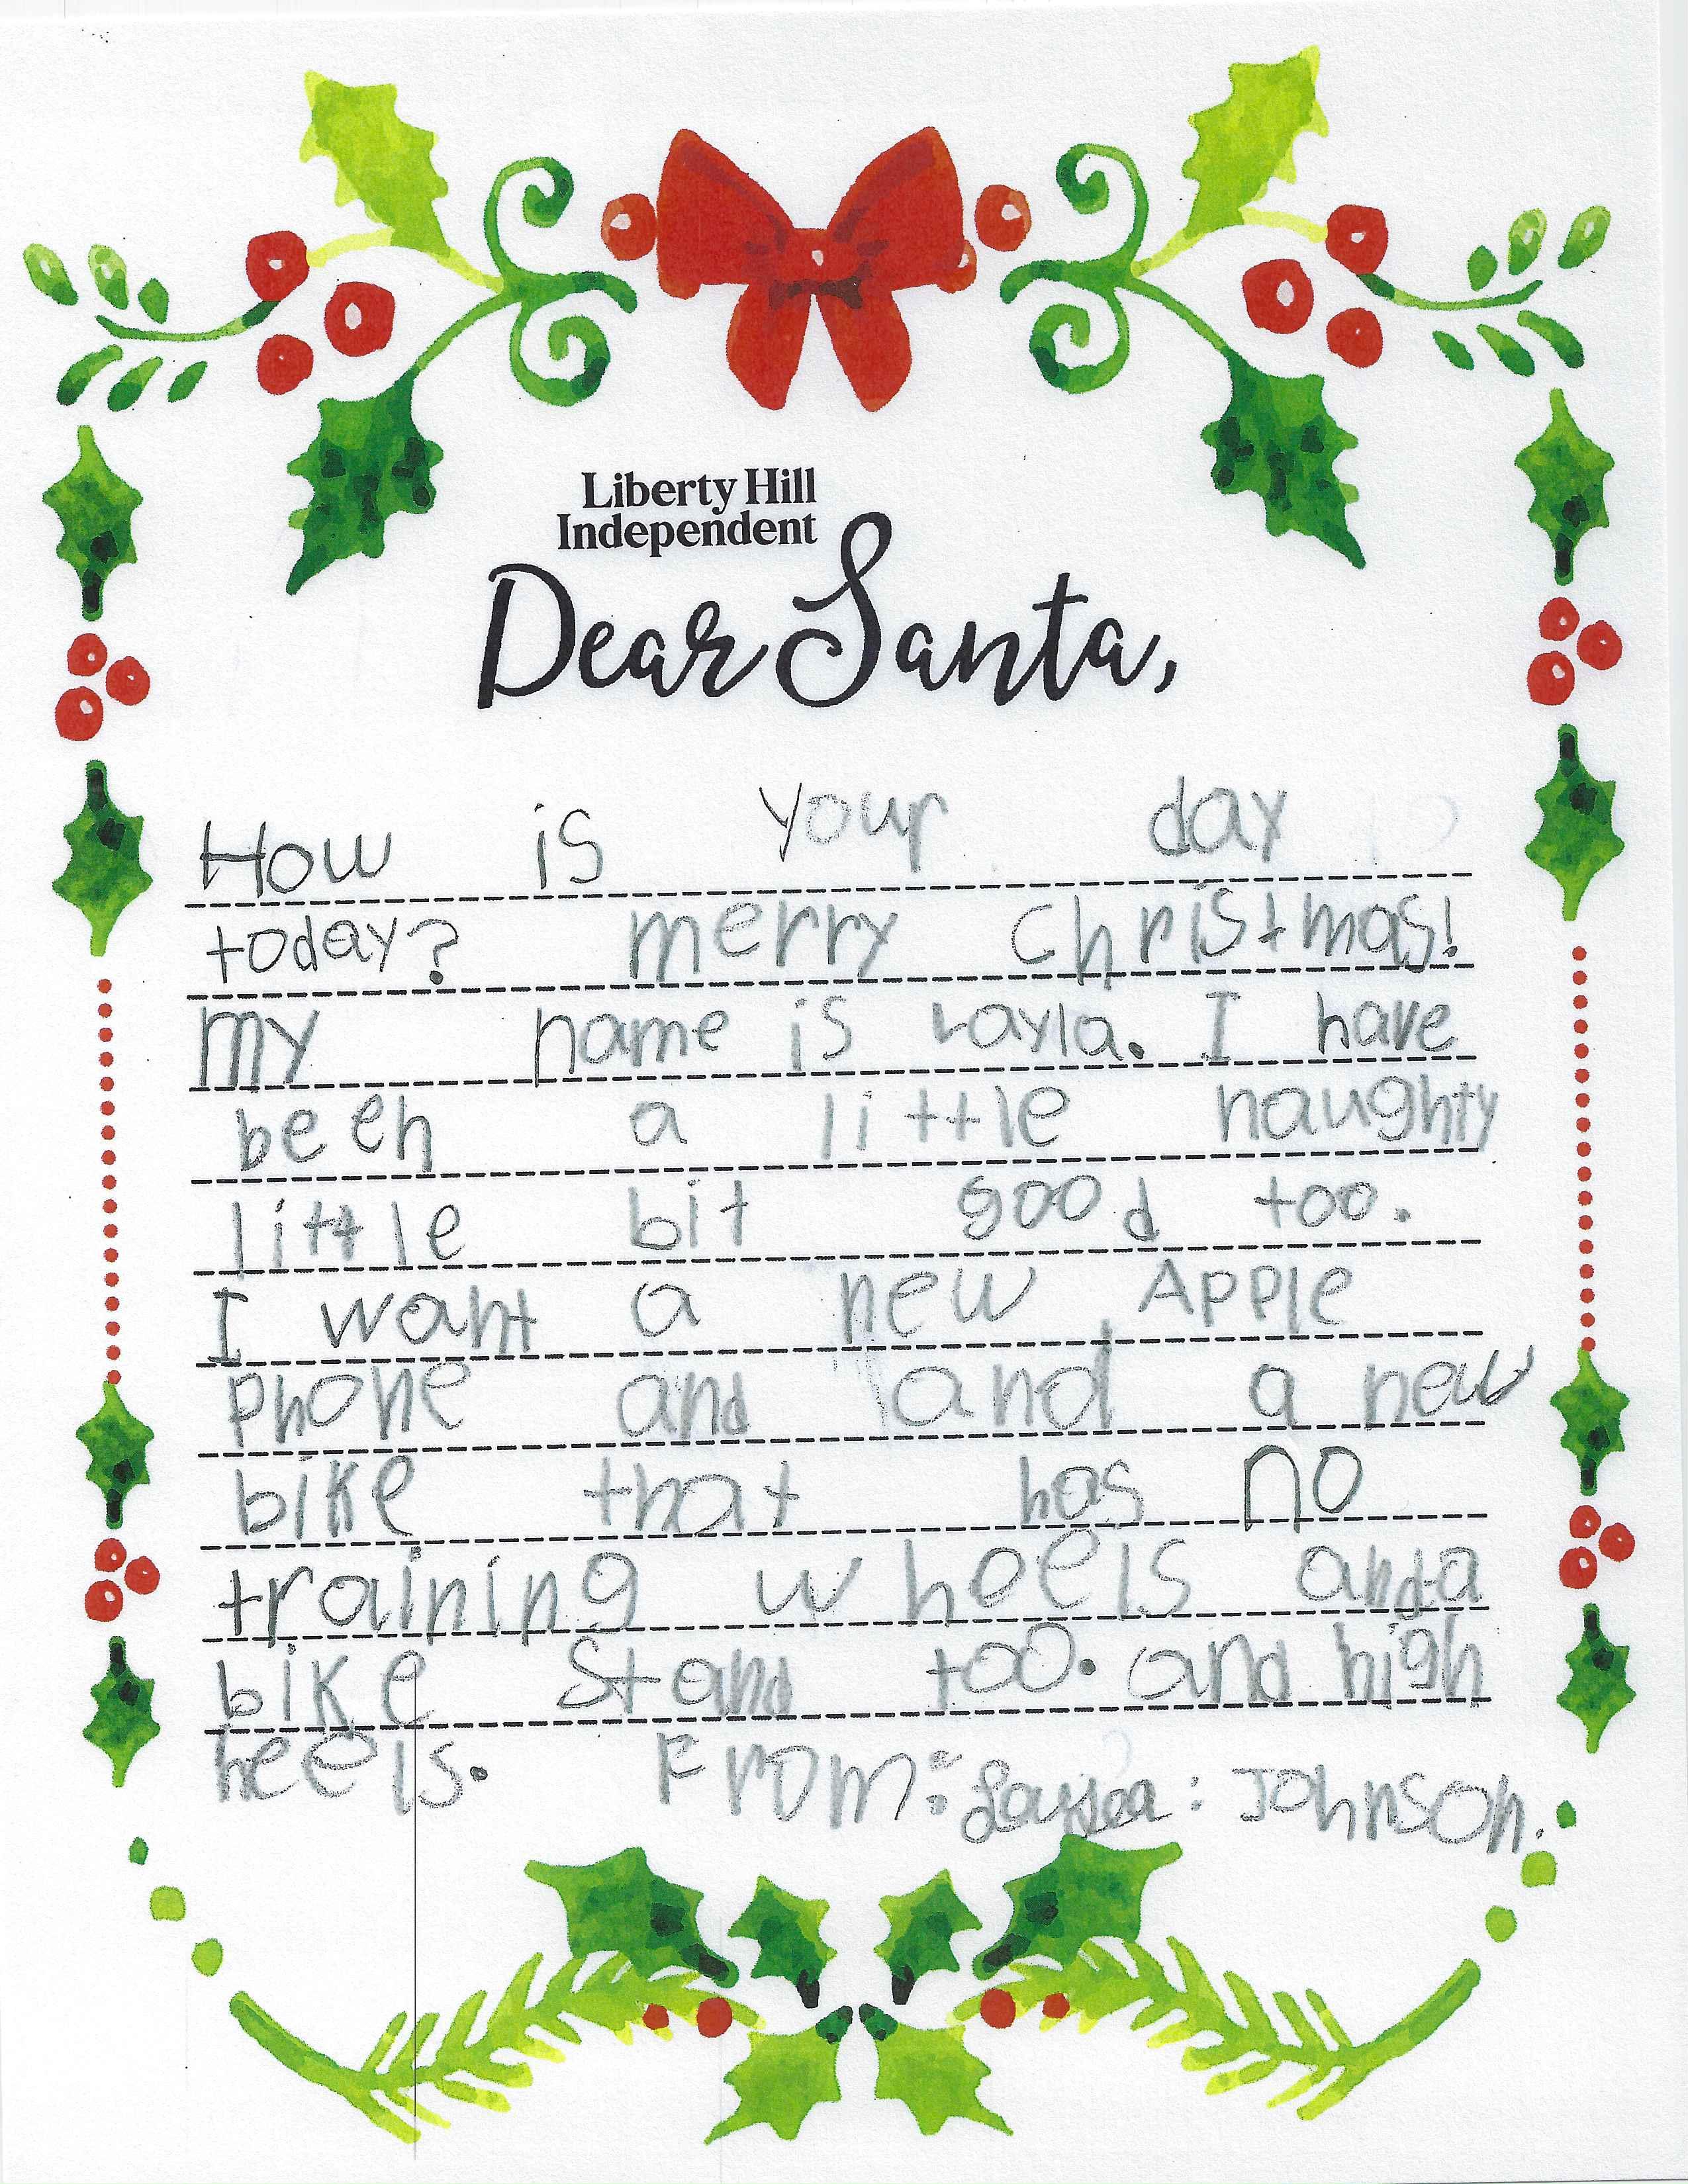 Liberty Hill
Independent
Dear Santa,
How is your day
today? merry christmas!
my name is Layla. I have
been a little naughty
little bit good too.
I want a new Apple
phone and and a new
bike that has no
training wheels and a
bike stand too. and high
heels. From: Layla: Johnson.